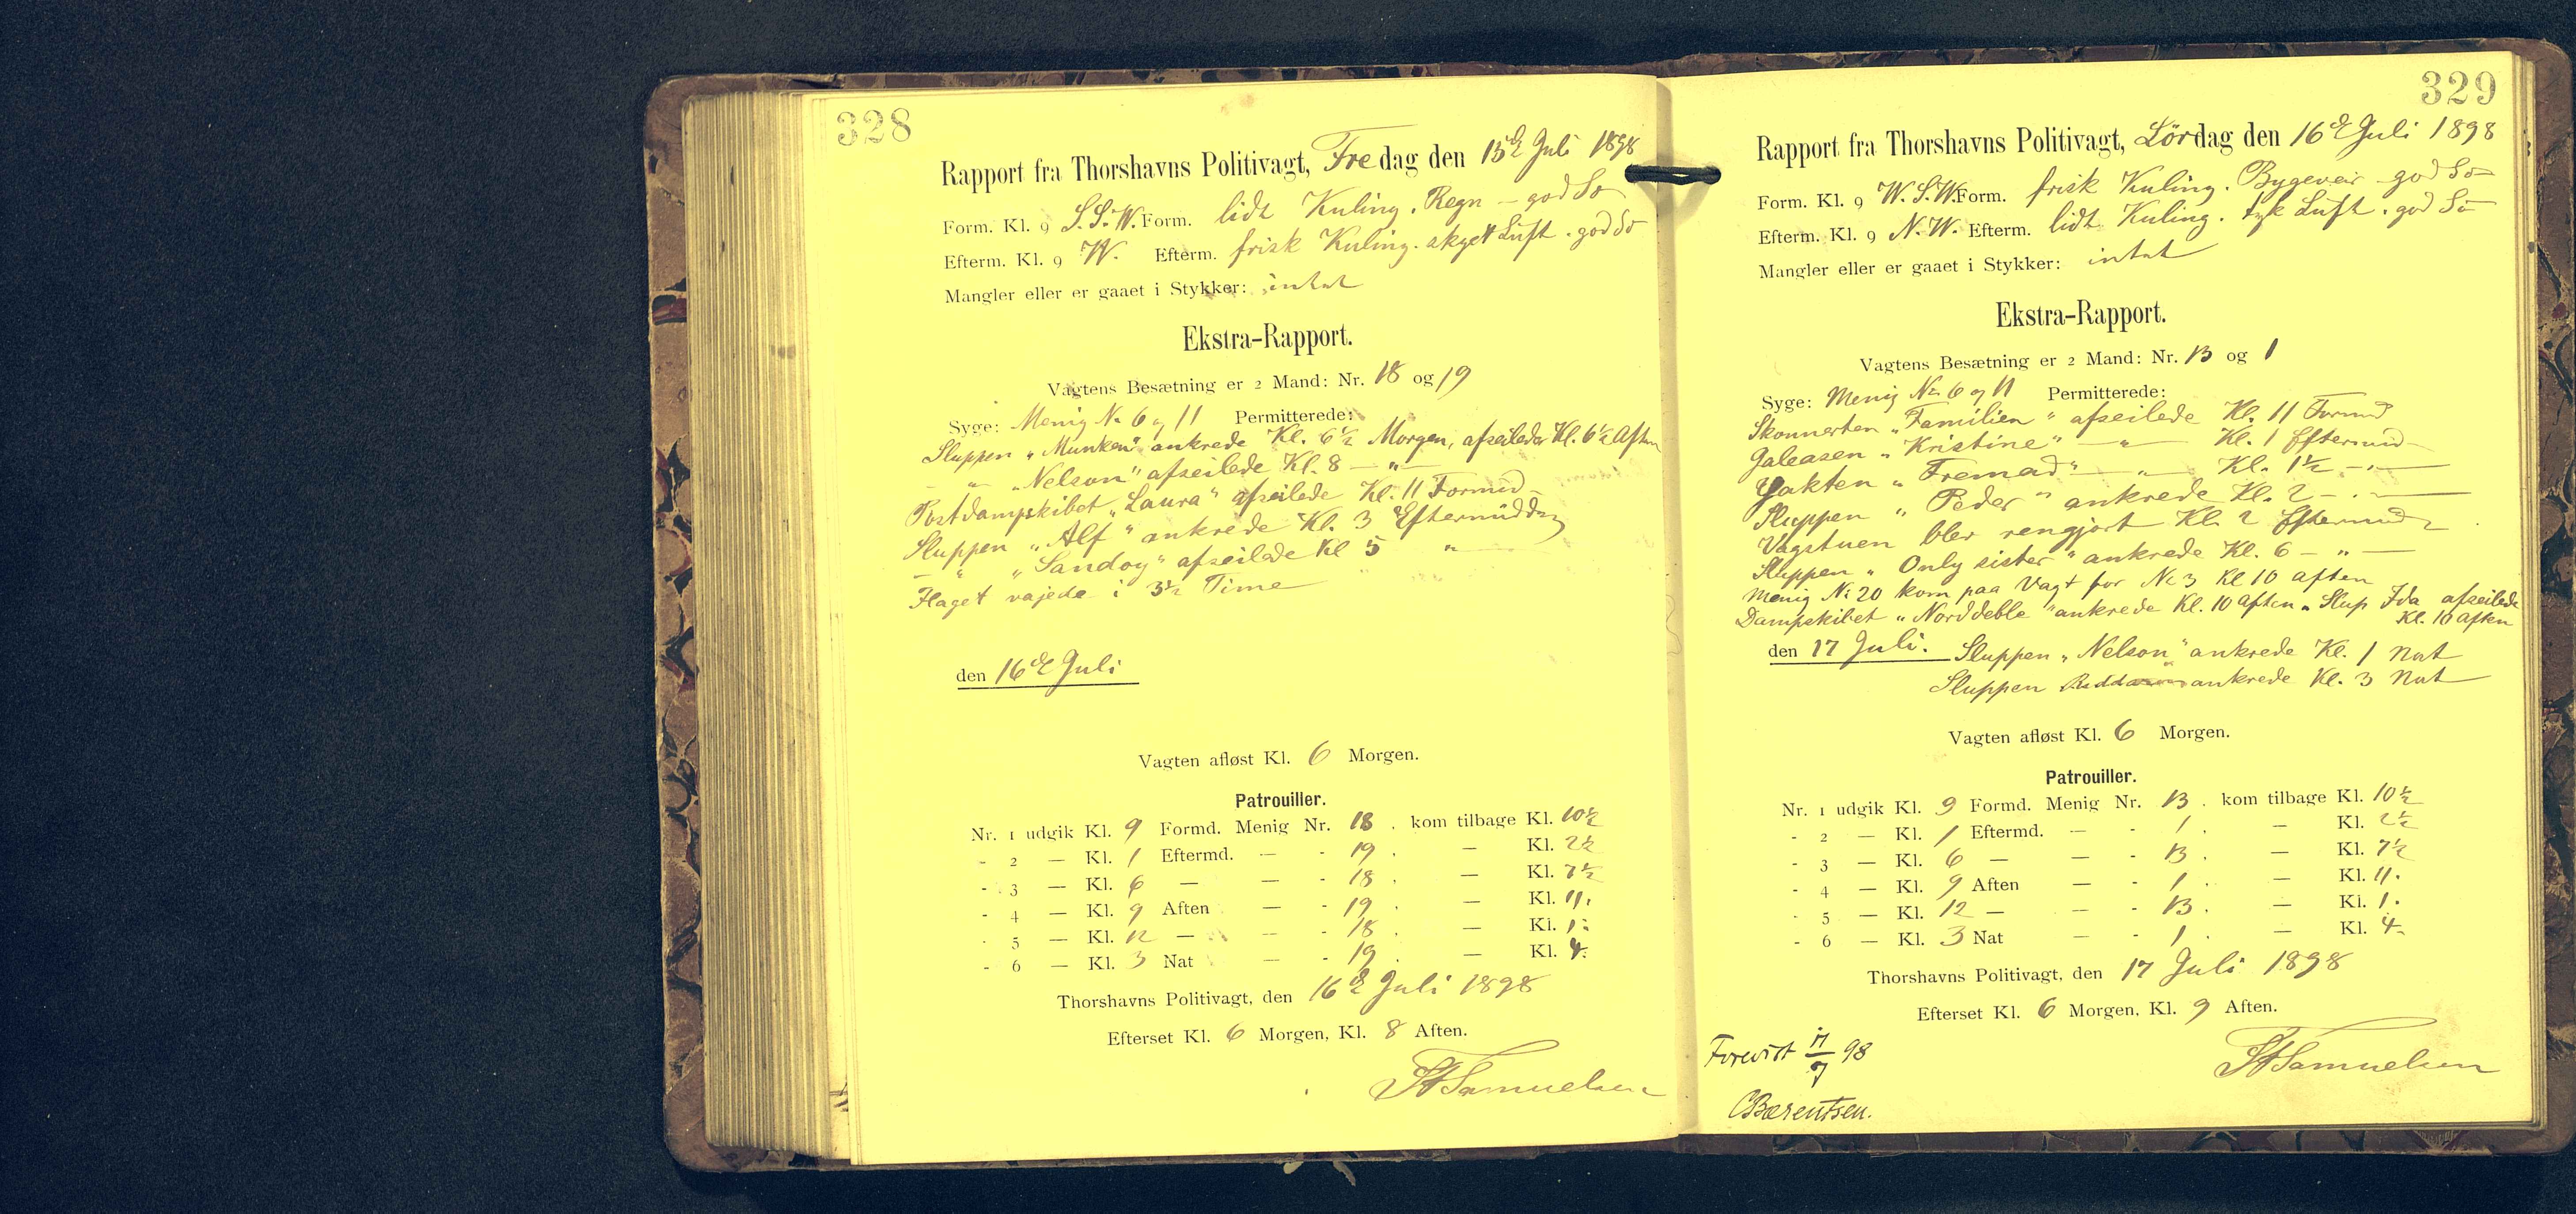 328
Rapport fra Thorshavns Politivagt, Fredag den 15de Juli 1898
Form. Kl. 9 S.S.W. Form. lidt Kuling. Regn - god Sø
Efterm. Kl. 9 W. Efterm. frisk Kuling. skyet Luft. god Sø
Mangler eller er gaaet i Stykker: intet
Ekstra-Rapport.
Vagtens Besætning er 2 Mand: Nr. 18 og 19
Syge: Menig No 6 og 11 Permitterede:
Sluppen "Munken" ankrede Kl. 6 1/2 Morgen, afseilede Kl. 6 1/2 Aften
— " — "Nelson" afseilede Kl. 8 — " —
Postdampskibet "Laura" afseilede Kl. 11 Formd
Sluppen "Alf" ankrede Kl. 3 Eftermiddag
— " "Sandoy" afseilede Kl 5 " —
Flaget vajede i 3 1/2 Time
den 16de Juli
Vagten afløst Kl. 6 Morgen.
Patrouiller.
Nr. 1 udgik Kl. 9 Formd. Menig Nr. 18. kom tilbage Kl. 10 1/2
- 2 — Kl. 1 Eftermd. — - 19. — Kl. 2 1/2
- 3 — Kl. 6 — — - 18. — Kl. 7 1/2
- 4 — Kl. 9 Aften — - 19. — Kl. 11.
- 5 — Kl. 12 — — - 18. — Kl. 1.
- 6 — Kl. 3 Nat — - 19. — Kl. 4.
Thorshavns Politivagt, den 16de Juli 1898
Efterset Kl. 6 Morgen, Kl. 8 Aften.
Samuelsen
329
Rapport fra Thorshavns Politivagt, Lördag den 16de Juli 1898
Form. Kl. 9 W.S.W. Form. frisk Kuling. Bygeveir god Sø
Efterm. Kl. 9 N.W. Efterm. lidt Kuling. tyk Luft. god Sø
Mangler eller er gaaet i Stykker: intet
Ekstra-Rapport.
Vagtens Besætning er 2 Mand: Nr. 13 og 1
Syge: Menig No 6 og 11 Permitterede:
Skonnerten "Familien" afseilede Kl. 11 Formd
Galeasen "Kristine" — " — Kl. 1 Eftermid
Jakten "Fremad" — " — Kl. 1 1/2 — " —
Sluppen "Peder" ankrede Kl. 2 — " —
Vagstuen blev rengjort Kl. 2 Eftermid
Sluppen "Only sister" ankrede Kl. 6 — " —
Menig No 20 kom paa Vagt for No 3 Kl 10 Aften
Dampskibet "Norddeble" ankrede Kl. 10 Aften Slup Ida afseilede
Kl. 10 Aften
den 17 Juli. Sluppen "Nelson" ankrede Kl. 1 Nat
Sluppen ankrede Kl. 3 Nat
Vagten afløst Kl. 6 Morgen.
Patrouiller.
Nr. 1 udgik Kl. 9 Formd. Menig Nr. 13. kom tilbage Kl. 10 1/2
- 2 — Kl. 1 Eftermd. — - 1. — Kl. 2 1/2
- 3 — Kl. 6 — — - 13. — Kl. 7 1/2
- 4 — Kl. 9 Aften — - 1. — Kl. 11.
- 5 — Kl. 12 — — - 13. — Kl. 1.
- 6 — Kl. 3 Nat — - 1. — Kl. 4.
Thorshavns Politivagt, den 17 Juli 1898
Efterset Kl. 6 Morgen, Kl. 9 Aften.
Samuelsen
Forevist 17/7 98
CBærentsen.